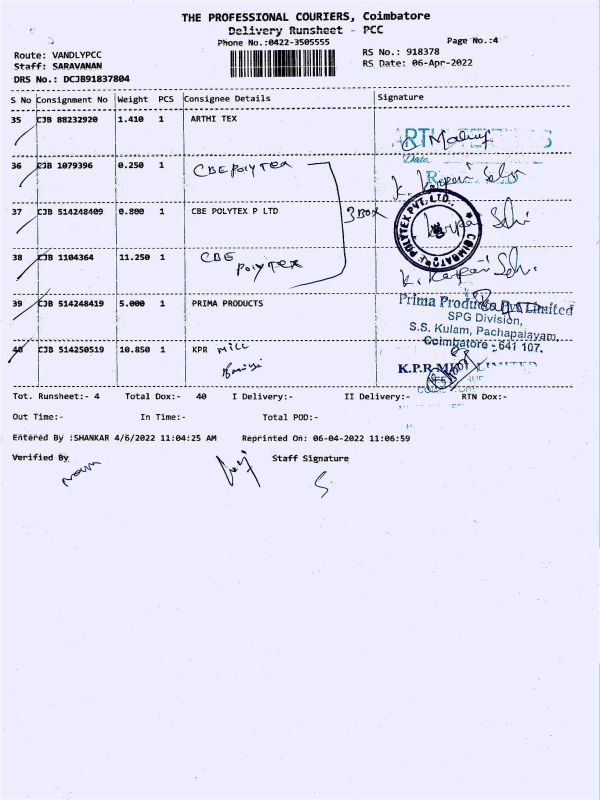 THE PROFESSIONAL COURIERS, Coimbatore
Delivery Runsheet - PCC
Phone No.:0422-3505555
Page No.:4
Route: VANDLYPCC
RS No.: 918378
Staff: SARAVANAN
RS Date: 06-Apr-2022
DRS No.: DCJB91837804
S No Consignment No Weight PCS Consignee Details Signature
35 CJB 88232920 1.410 1 ARTHI TEX
Date
36 CJB 1079396 0.250 1 CBE Poly Tex
3 Box
37 CJB 514248409 0.800 1 CBE POLYTEX P LTD
COIMBATORE POLYTEX PVT. LTD.,
38 CJB 1104364 11.250 1 CBE
Poly Tex
39 CJB 514248419 5.000 1 PRIMA PRODUCTS
Prima Products Pvt Limited
SPG Division,
S.S. Kulam, Pachapalayam,
Coimbatore - 641 107.
40 CJB 514250519 10.850 1 KPR Mill
K.P.R MILL LIMITED
Tot. Runsheet:- 4 Total Dox:- 40 I Delivery:- II Delivery:- RTN Dox:-
Out Time:- In Time:- Total POD:-
Entered By :SHANKAR 4/6/2022 11:04:25 AM Reprinted On: 06-04-2022 11:06:59
Verified By Staff Signature